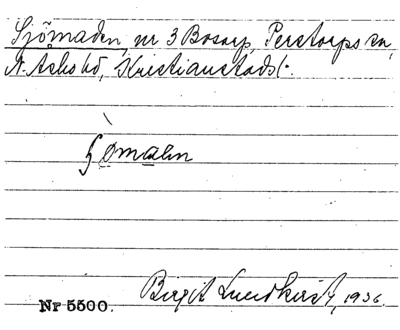 Sjömaden, nr 3 Bosarp, Perstorps sn,
N. Åsbo hd, Kristianstads l.
Birgit Lundkvist, 1936.
Nr 5500.